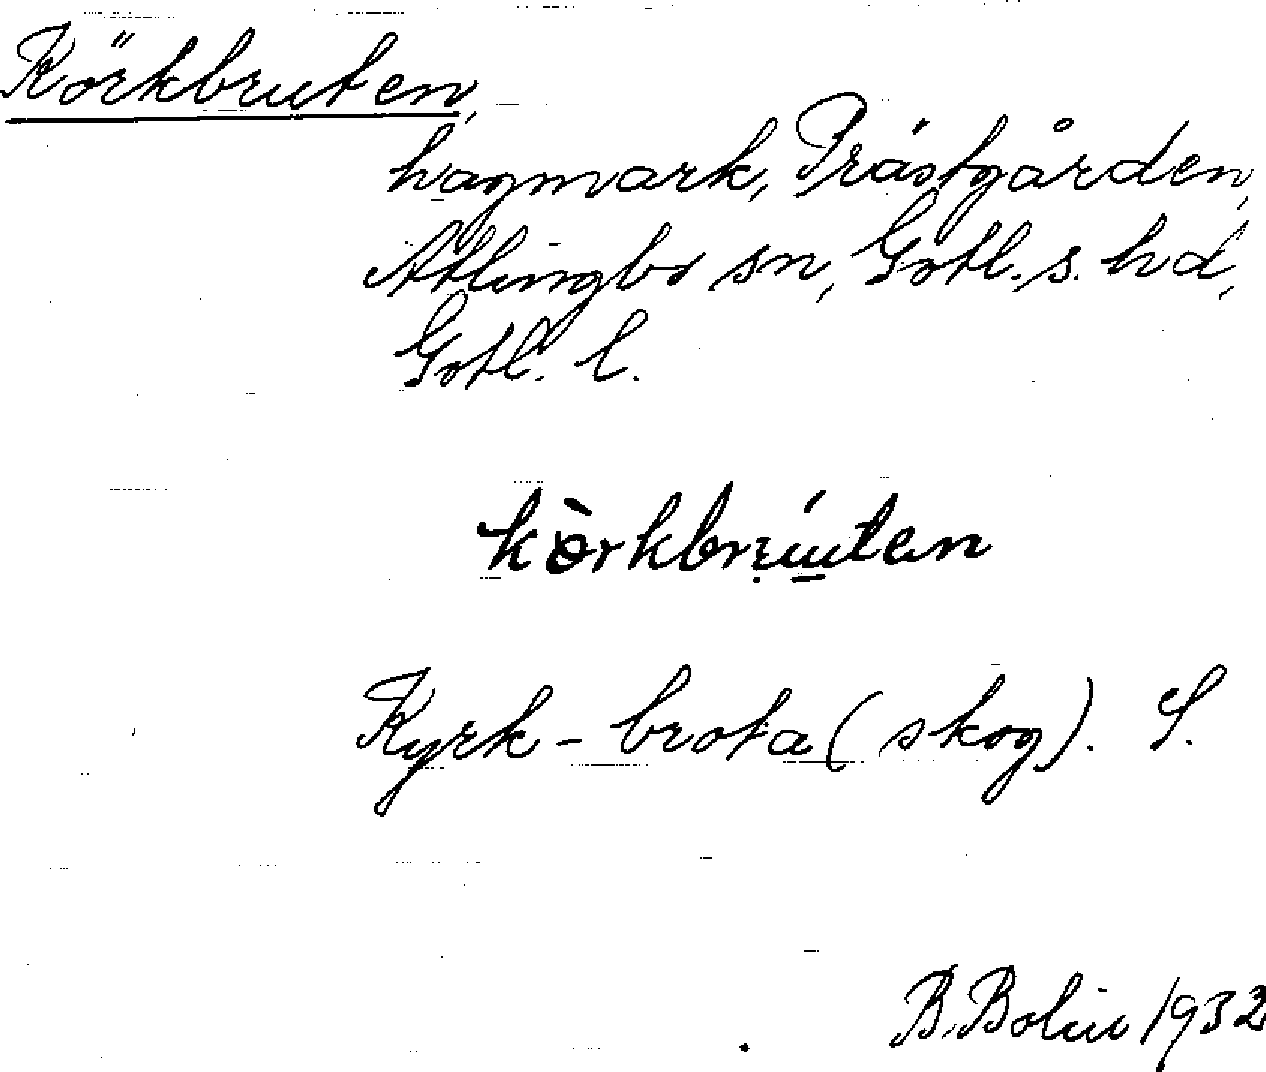 Körkbruten,
hagmark, Prästgården,
Atlingbo sn, Gotl. s. hd,
Gotl. l.
kòrkbrúten
Kyrk-brota (skog). S.
B. Bolin 1932